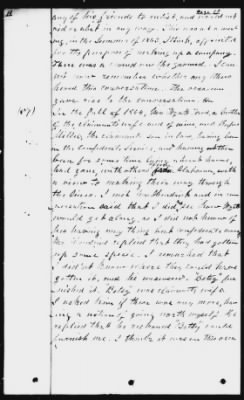 any of his friends to enlist, and would not
aid or abet in any way. This was at a meet-
ing, in the Summer of 1861, I think, of
for the purpose of making up a company.
There was a crowd on the ground. I can
not now remember whether any other
heard this conversation. The occasion
gave rise to the conversation.
In the fall of 1864, Ben Hyatt and a brother
of the claimants wife, and of mine, and
Miller, the claimant son in law, having been
in the Confederate Service, and having
been for some time lying about home,
had gone, with others from Alabama, with
a view to making their way through
the lines. I met and in con-
versation said that I didnt see how Hyatt
would get along, as I did not know of
his having any thing but Confederate money
replied that they had gotten
up some specie. I remarked that
I didn't know where they could have
gotten it, and he answered "Betsy fur-
nished it." Betsy was claimants wife.
I asked him if there was any more, hav-
ing a notion of going north myself. He
replied that he reckoned Betsy could
furnish me. I think it was on this occa